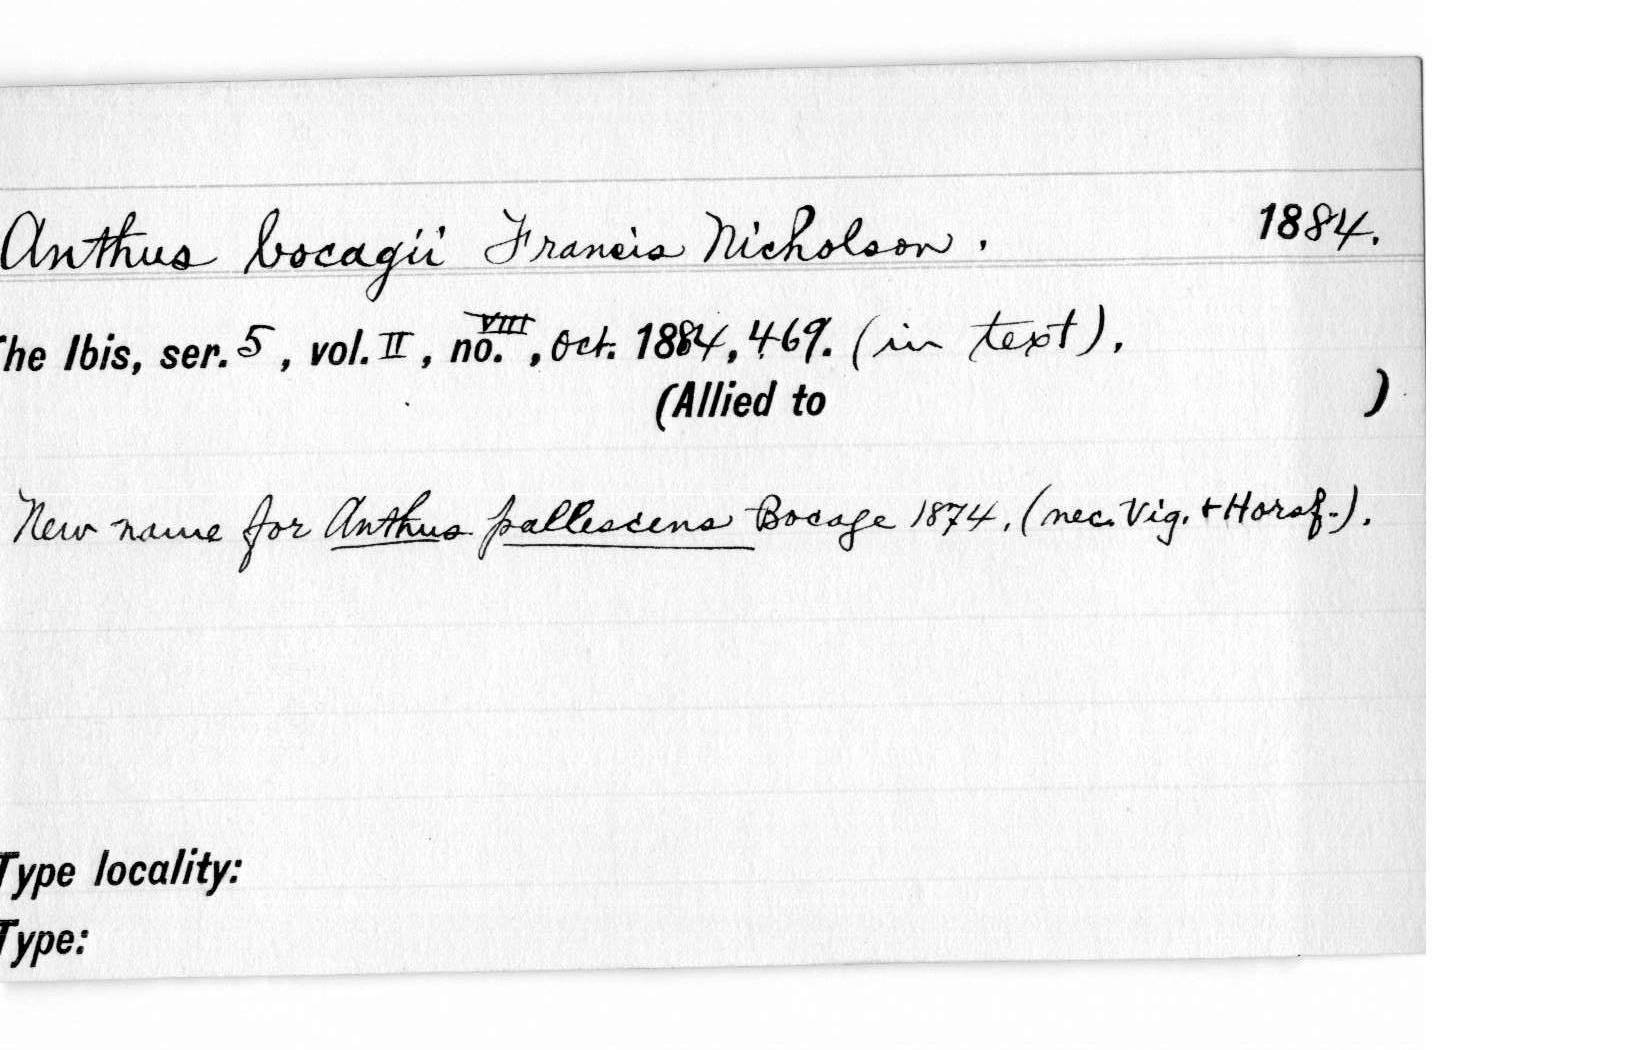 Anthus bocagii Francis Nicholson. 1884.
The Ibis, ser. 5, vol. II, no. VIII, Oct. 1884, 469. (in text).
(Allied to )
New name for Anthus pallescens Bocage 1874. (nec. Vig. + Horsf.).
Type locality:
Type: